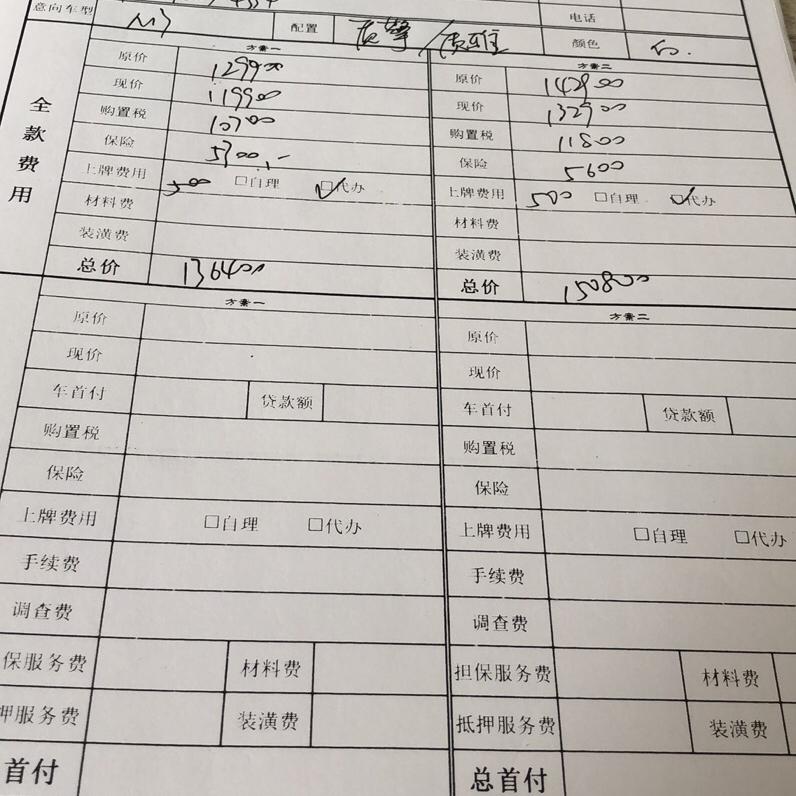 意向车型 M3 配置 质雅 颜色 电话
全款费用
方案一 方案二
原价 129900 原价 142900
现价 119900 现价 132900
购置税 10700 购置税 11800
保险 5300 保险 5600
上牌费用 500 □自理 □代办 上牌费用 500 □自理 □代办
材料费 材料费
装潢费 装潢费
总价 136400 总价 150800
方案一 方案二
原价 原价
现价 现价
车首付 贷款额 车首付 贷款额
购置税 购置税
保险 保险
上牌费用 □自理 □代办 上牌费用 □自理 □代办
手续费 手续费
调查费 调查费
保服务费 材料费 担保服务费 材料费
押服务费 装潢费 抵押服务费 装潢费
首付 总首付